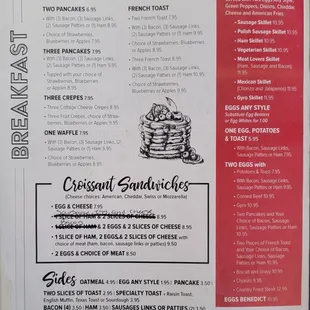 BREAKFAST
TWO PANCAKES 6.95
• With (3) Bacon, (3) Sausage Links,
(2) Sausage Patties or (1) Ham 8.95
• Choice of Strawberries,
Blueberries or Apples 8.95
THREE PANCAKES 7.95
• With (3) Bacon, (3) Sausage Links,
(2) Sausage Patties or (1) Ham 9.95
• Topped with your choice of
Strawberries, Blueberries
or Apples 9.95
THREE CREPES 7.95
• Three Cottage Cheese Crepes 8.95
• Three Fruit Crepes, choice of Straw-
berries, Blueberries or Apples 8.95
ONE WAFFLE 7.95
• With (3) Bacon, (3) Sausage Links,
(2) Sausage Patties or (1) Ham 9.95
• Choice of Strawberries,
Blueberries or Apples 9.95
FRENCH TOAST
• Two French Toast 7.95
• With (3) Bacon, (3) Sausage Links,
(2) Sausage Patties or (1) Ham 9.95
• Choice of Strawberries,
Blueberries or Apples 9.95
• Three French Toast 8.95
• With (3) Bacon, (3) Sausage Links,
(2) Sausage Patties or (1) Ham 10.95
• Choice of Strawberries,
Blueberries or Apples 10.95
Croissant Sandwiches
(Cheese choices: American, Cheddar, Swiss or Mozzarella)
• EGG & CHEESE 7.95
• 1 SLICE OF HAM & 2 SLICES OF CHEESE 8.95
• 1 SLICE OF HAM & 2 EGGS & 2 SLICES OF CHEESE 8.95
• 1 SLICE OF HAM, 2 EGGS, & 2 SLICES OF CHEESE with
choice of meat (ham, bacon, sausage links or patties) 9.50
• 2 EGGS & CHOICE OF MEAT 8.50
Sides OATMEAL 4.95 • EGG ANY STYLE 1.95 • PANCAKE 3.50 •
TWO SLICES OF TOAST 2.95 • SPECIALTY TOAST • Raisin Toast
English Muffin, Texas Toast or Sourdough 2.95
BACON (4) 3.50 • HAM 3.50 • SAUSAGES LINKS OR PATTIES (2)
Green Peppers, Onions, Cheddar
Cheese and American Fries
• Sausage Skillet 10.95
• Polish Sausage Skillet 10.95
• Ham Skillet 10.95
• Vegetarian Skillet 10.95
• Meat Lover's Skillet
(Ham, Sausage and Bacon)
11.95
• Mexican Skillet
(Chorizo and Jalapenos) 11.95
• Gyro Skillet 11.95
EGGS ANY STYLE
Substitute Egg Beaters
or Egg Whites for 1.00
ONE EGG, POTATOES
& TOAST 5.95
• With Bacon, Sausage Links,
Sausage Patties or Ham 7.95
TWO EGGS with
• Potatoes & Toast 7.95
• With Bacon, Sausage Links,
Sausage Patties or Ham
9.95
• Corned Beef 10.95
• Gyro 10.95
• Two Pancakes and Your
Choice of Bacon, Sausage
Links, Sausage Patties
or Ham 10.95
• Two Pieces of French Toast
and Your Choice of Bacon,
Sausage Links, Sausage
Patties or Ham 10.95
• Biscuit and Gravy 10.95
• Chicken 10.95
• Country Fried Steak 12.95
EGGS BENEDICT 10.95